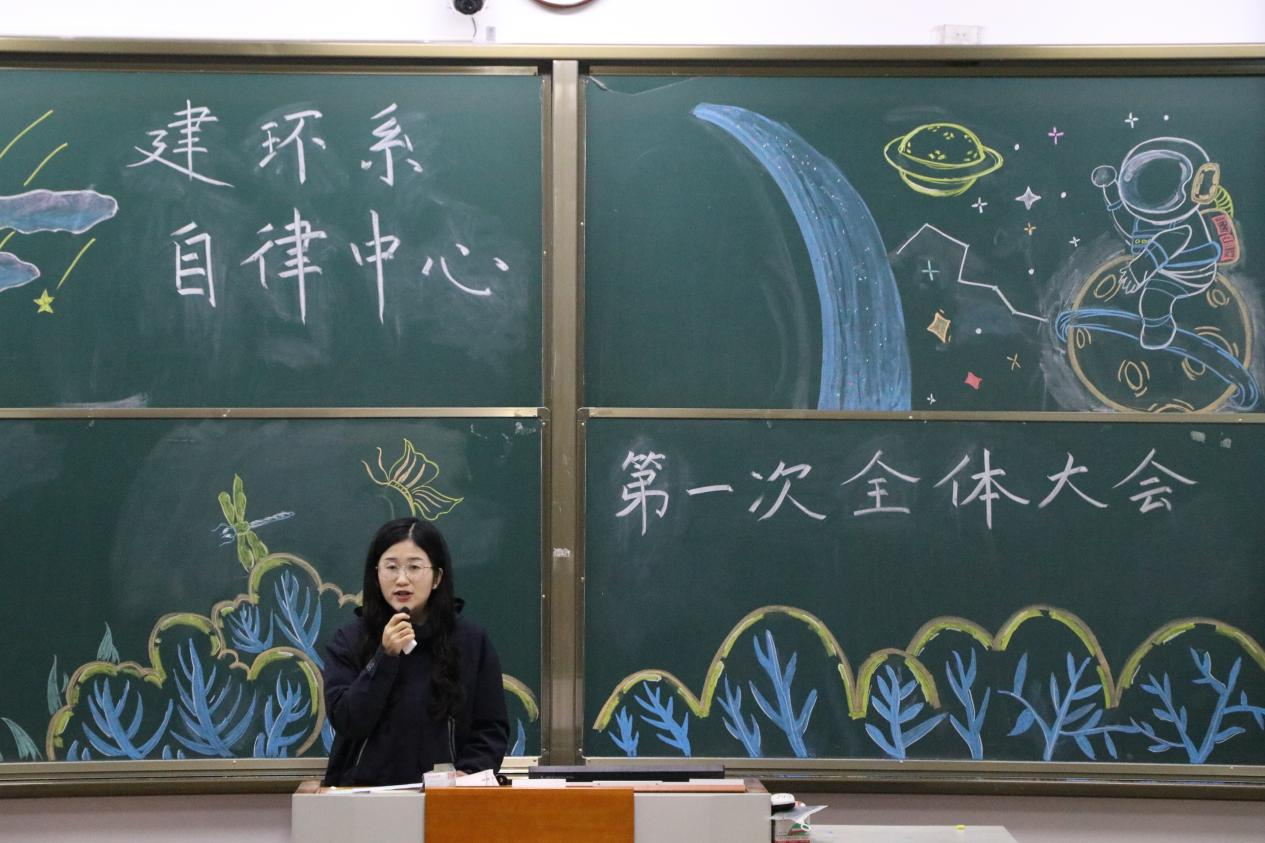 建环系
自律中心
第一次全体大会